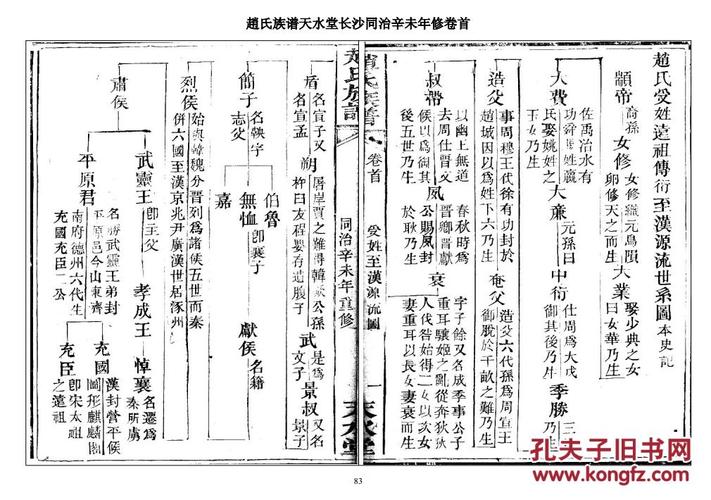 趙氏族谱天水堂长沙同治辛未年修卷首
趙氏受姓遠祖傳衍至漢源流世系圖 本史記
顓帝 裔孫
女修 女修織元鳥隕
卵修吞之而生
大業 娶少典之女
曰女華乃生
大費 佐禹治水有
功舜賜姓嬴
氏娶姚姓之
玉女乃生
大亷 元孫曰
中衍 仕周為大戊
御其後乃生
季勝 三
乃生
造父 事周穆王代徐有功封於
趙城因以為姓下六乃生
奄父 造父六代孫為周宣王
御脫於千畝之難乃生
叔帶 以幽王無道
去周仕晋文
侯以為御其
後五世乃生
夙 春秋時為
晋卿晋獻
公賜夙封
於耿乃生
衰 字子餘又名成季事公子
重耳驪姬之亂從奔狄狄
人伐咎如得二女以次女
妻重耳以長女妻衰而生
趙氏族譜
卷首
受姓至漢源流圖
同治辛未年重修
一
天水堂
盾 名宣子又
名宣孟
朔 屠岸賈之難得韓厥公孫
杵臼友程嬰存遺腹子
武 是為
文子
景叔 又名
景子
簡子 名鞅字
志父
伯魯
無恤 即襄子
嘉
獻侯 名籍
烈侯 始與韓魏分晋列為諸侯五世而秦
併六國至漢京兆尹廣漢世居涿州
肅侯
武靈王 即主父
孝成王
悼襄 名遷為
秦所虜
平原君 名勝武靈王弟封
平原邑今山東濟
南府德州六代生
充國充臣二公
充國 漢封營平侯
圖形麒麟閣
充臣 即宋太祖
之遠祖
孔夫子旧书网
83